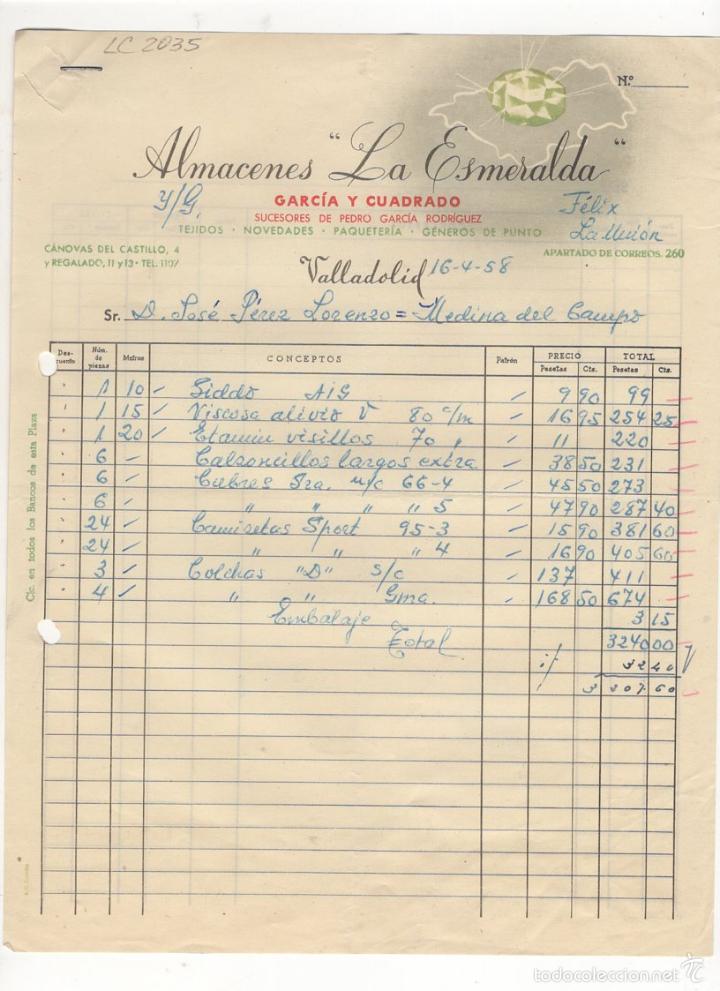 LC 2035
N.º
Almacenes "La Esmeralda"
GARCÍA Y CUADRADO
SUCESORES DE PEDRO GARCÍA RODRÍGUEZ
TEJIDOS · NOVEDADES · PAQUETERÍA · GÉNEROS DE PUNTO
Y/G.
Félix
La Unión
CÁNOVAS DEL CASTILLO, 4
y REGALADO, 11 y 13 · TEL. 1107
APARTADO DE CORREOS. 260
Valladolid 16-4-58
Sr. D. José Pérez Lorenzo = Medina del Campo
Des-cuento Núm. de piezas Metros CONCEPTOS Patrón PRECIO Pesetas Cts. TOTAL Pesetas Cts.
" 1 10 - AIG - 9 90 99
" 1 15 - Viscosa alivio V 80 c/m - 16 95 254 25
" 1 20 - Etamin visillos 70 " - 11 220
" 6 - Calzoncillos largos extra - 38 50 231
" 6 - Cubres Sra. m/c 66-4 - 45 50 273
" 6 - " " " 5 - 47 90 287 40
" 24 - Camisetas Sport 95-3 - 15 90 381 60
" 24 - " " " 4 - 16 90 405 60
" 3 - Colchas "D" s/c - 137 411
" 4 - " " Gma. - 168 50 674
Embalaje 3 15
Total 3240 00
32 40
3 207 60
Cte. en todos los Bancos de esta Plaza
todocoleccion.net